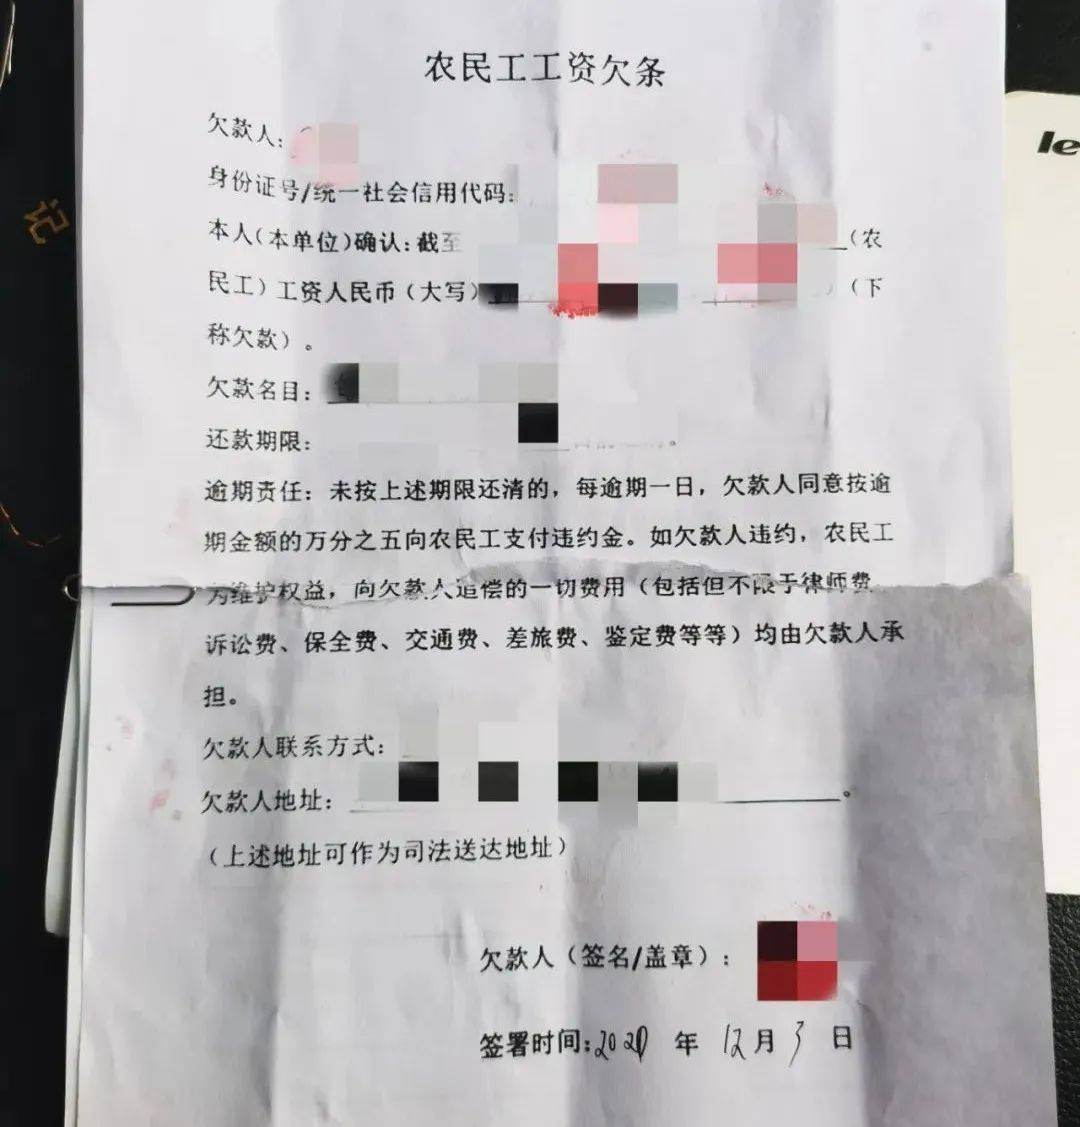 农民工工资欠条
欠款人:
身份证号/统一社会信用代码:
本人(本单位)确认:截至 (农
民工)工资人民币(大写) )(下
称欠款)。
欠款名目:
还款期限: 。
逾期责任:未按上述期限还清的,每逾期一日,欠款人同意按逾
期金额的万分之五向农民工支付违约金。如欠款人违约,农民工
为维护权益,向欠款人追偿的一切费用(包括但不限于律师费、
诉讼费、保全费、交通费、差旅费、鉴定费等等)均由欠款人承
担。
欠款人联系方式:
欠款人地址: 。
(上述地址可作为司法送达地址)
欠款人(签名/盖章):
签署时间:2020 年 12月3日
记
le